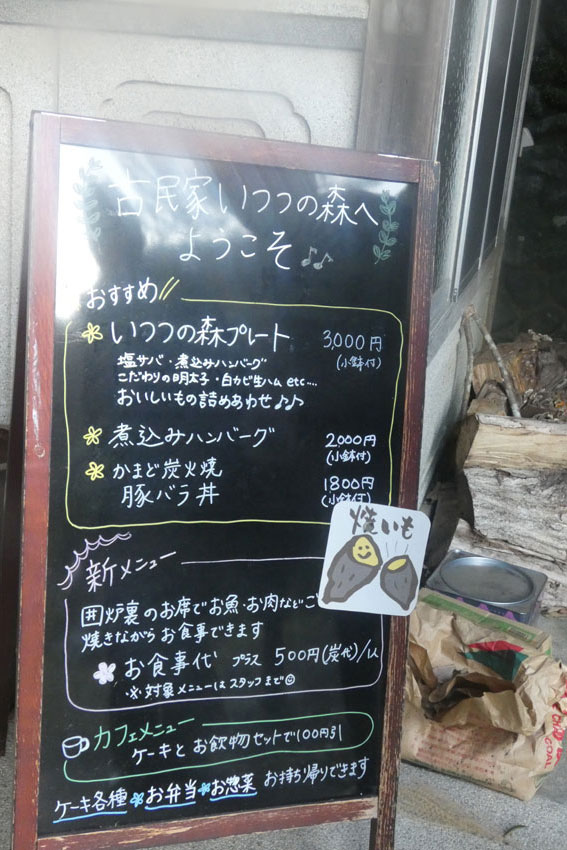 古民家いつつの森へ
ようこそ♪♪
おすすめ
いつつの森プレート 3,000円
(小鉢付)
塩サバ・煮込みハンバーグ
こだわりの明太子・白カビ生ハム etc....
おいしいもの詰めあわせ♪♪
煮込みハンバーグ 2000円
(小鉢付)
かまど炭火焼
豚バラ丼 1800円
(小鉢付)
焼いも
新メニュー
囲炉裏のお席でお魚・お肉などご
焼きながらお食事できます
お食事代 プラス 500円(炭代)/1人
※対象メニューはスタッフまで
カフェメニュー
ケーキとお飲物セットで100円引
ケーキ各種 お弁当 お惣菜 お持ち帰りできます